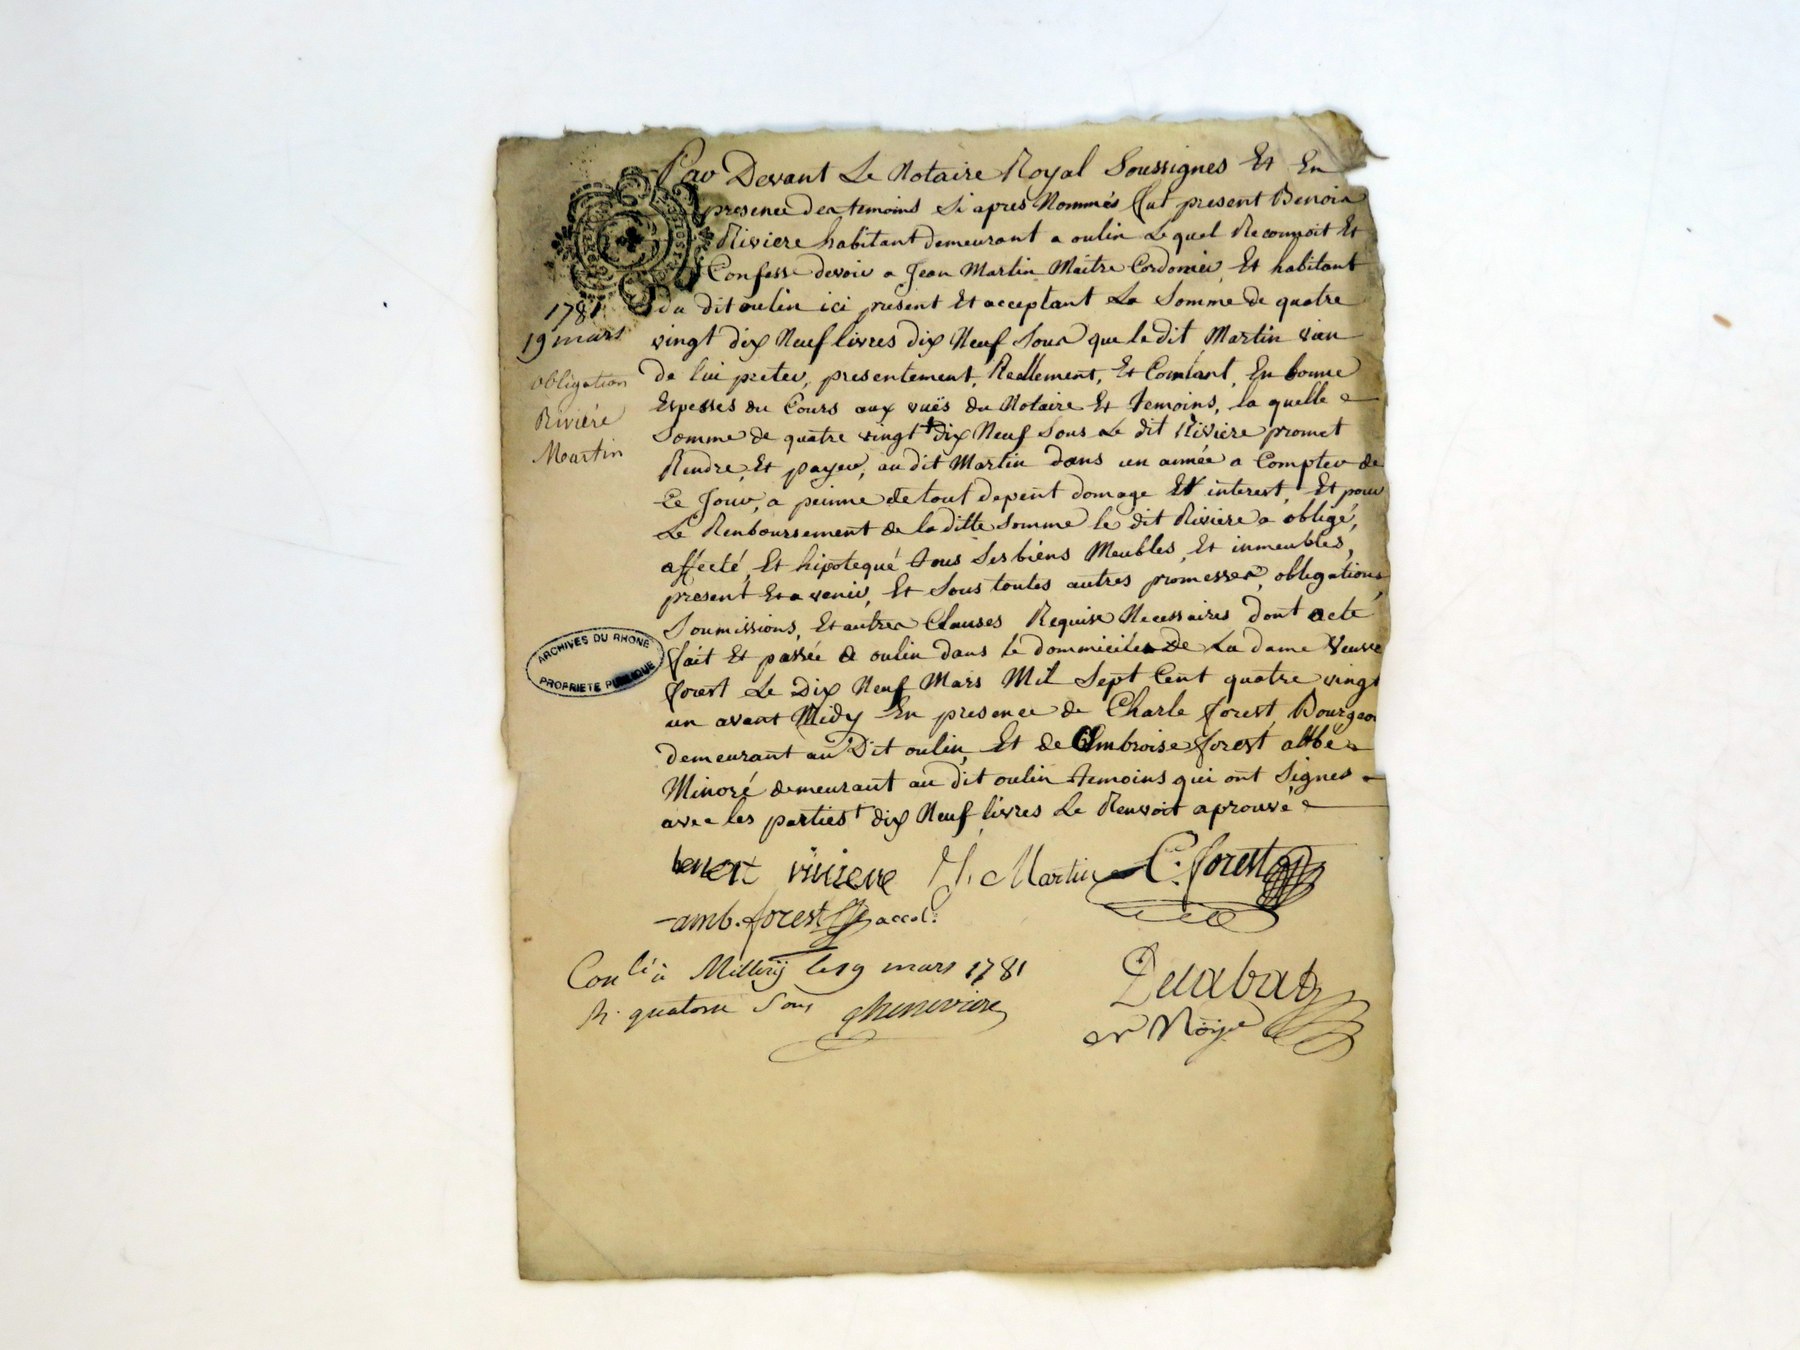 Par Devant Le Notaire Royal Soussignes Et En
presence des temoins Si apres Nommés fut present Benoit
Riviere habitant demeurant a oulin Lequel Reconnoit Et
Confesse devoir a Jean Martin Maitre Cordonier Et habitant
du dit oulin ici present Et acceptant La Somme de quatre
vingt dix Neuf livres dix Neuf Sous que le dit Martin vien
de lui preter, presentement, Reellement, Et Comtant, En bonne
Espesses du Cours aux vuës du Notaire Et temoins, la quelle
Somme de quatre vingt + dix Neuf Sous Le dit Riviere promet
Rendre, Et payer, au dit Martin dans un année a Compter de
Ce Jour, a peinne de tout depent domage Et interest, Et pour
Le Renboursement de la ditte Somme le dit Riviere a obligé,
affecté, Et hipotequé tous Ses biens Meubles, Et inmeubles,
present Et a venir, Et Sous toutes autres promesses, obligations
Soumissions, Et autres Clauses Requise Necessaires dont acte
fait Et passée a oulin dans le dommicile De La dame Veuve
forest Le Dix Neuf Mars Mil Sept Cent quatre vingt
un avant Midy En presence de Charle forest, Bourgeoi
demeurant au Dit oulin, Et de Ambroise forest abbé
Minoré demeurant au dit oulin temoins qui ont Signes
avec les parties + dix Neuf livres Le Renvoit aprouvé
1781
19 mars
obligation
Riviére
Martin
ARCHIVES DU RHONE
PROPRIETE PUBLIQUE
benoit riviere J. Martin C. forest
amb. forest accol.
Con.lé à Millery le 19 mars 1781
R. quatorze Sous Cheneviere
Delabat
Nore